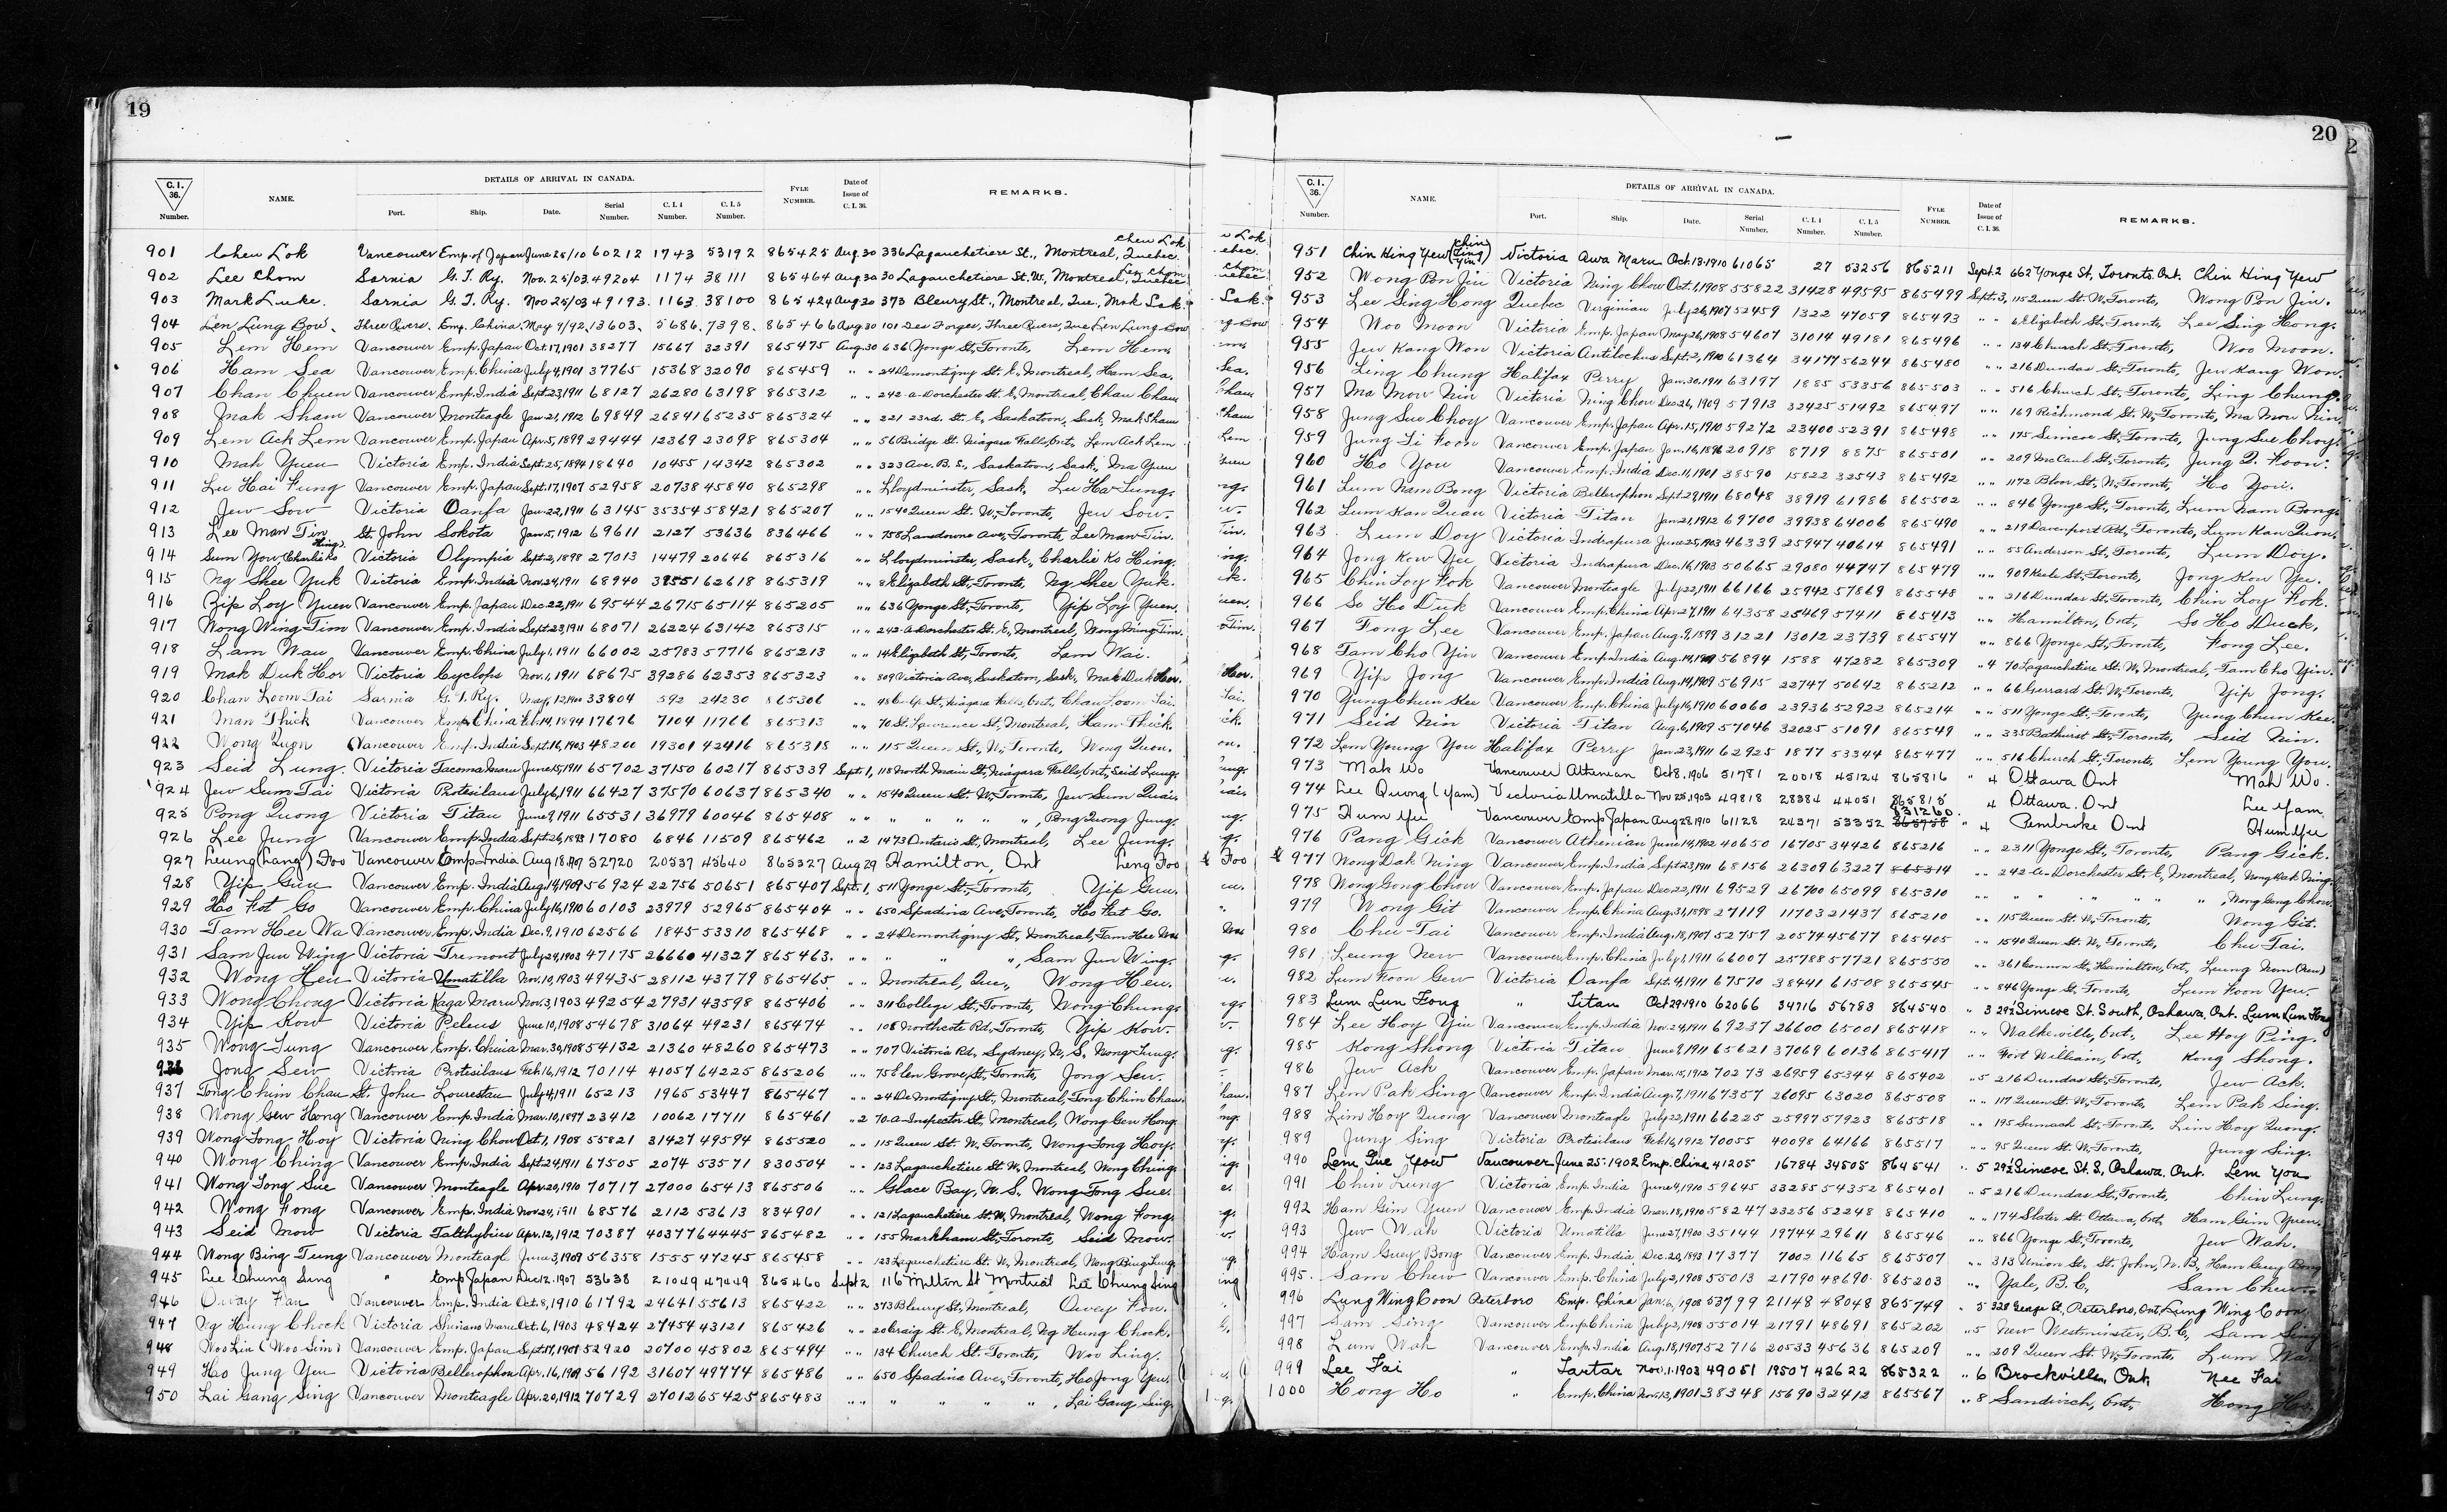 19
C.I. 36. Number.
NAME.
DETAILS OF ARRIVAL IN CANADA.
Port. Ship. Date. Serial Number. C.I.4 Number. C.I.5 Number.
FYLE NUMBER.
Date of Issue of C.I.36.
REMARKS.
901 Chew Lok Vancouver Emp. of Japan June 25/10 60212 1743 53192 865425 Aug. 30 336 Lagauchetiere St., Montreal, Quebec. Chew Lok
902 Lee Chom Sarnia G.T. Ry. Nov. 25/03 49204 1174 38111 865464 Aug. 30 30 Lagauchetiere St. W., Montreal, Quebec
903 Mark Luke. Sarnia G.T. Ry. Nov 25/03 49193. 1163. 38100 865424 Aug 30 373 Bleury St., Montreal, Que., Mak Luk.
904 Len Lung Bow. Three Rivers. Emp. China. May 9/92. 13603. 5686. 7398. 865466 Aug 30 101 Des Forges, Three Rivers, Que Len Lung Bow
905 Lem Hem Vancouver Emp. Japan Oct. 17, 1901 38277 15667 32391 865475 Aug. 30 636 Yonge St., Toronto, Lem Hem,
906 Ham Sea Vancouver Emp. China July 4, 1901 37765 15368 32090 865459 " " 24 Demontigny St. E, Montreal, Ham Sea.
907 Chan Chuen Vancouver Emp. India Sept. 23, 1911 68127 26280 63198 865312 " " 242-a-Dorchester St. E, Montreal, Chan Cham
908 Mak Sham Vancouver Monteagle Jan. 21, 1912 69849 26841 65235 865324 " " 221 23rd. St. E, Saskatoon, Sask, Mak Sham
909 Lem Ack Lem Vancouver Emp. Japan Apr. 5, 1899 29444 12369 23098 865304 " " 56 Bridge St. Niagara Falls, Ont., Lem Ack Lem
910 Mah Yuen Victoria Emp. India Sept. 25, 1894 18640 10455 14342 865302 " " 323 Ave. B. S., Saskatoon, Sask, Ma Yuen
911 Lu Hai Fung Vancouver Emp. Japan Sept. 17, 1907 52958 20738 45840 865298 " " Lloydminster, Sask, Lu Ha Lung.
912 Jew Sow Victoria Oanfa Jan. 22, 1911 63145 35354 58421 865207 " " 1540 Queen St. W., Toronto, Jew Sow.
913 Lee Man Tin St. John Sokota Jan. 5, 1912 69611 2127 53636 836466 " " 758 Lansdowne Ave, Toronto, Lee Man Tin.
914 Sum You (Charlie Ko Hing) Victoria Olympia Sept. 2, 1898 27013 14479 20646 865316 " " Lloydminster, Sask, Charlie Ko Hing.
915 Ng Shee Yuk Victoria Emp. India Nov. 24, 1911 68940 39551 62618 865319 " " 8 Elizabeth St., Toronto, Ng Shee Yuk.
916 Yip Loy Yuen Vancouver Emp. Japan Dec. 22, 1911 69544 26715 65114 865205 " " 636 Yonge St., Toronto, Yip Loy Yuen.
917 Wong Wing Tim Vancouver Emp. India Sept. 23, 1911 68071 26224 63142 865315 " " 242-a-Dorchester St. E, Montreal, Wong Wing Tim.
918 Lam Wau Vancouver Emp. China July 1, 1911 66002 25783 57716 865213 " " 14 Elizabeth St., Toronto, Lam Wai.
919 Mak Duk Hor Victoria Cyclops Nov. 1, 1911 68675 39286 62353 865323 " " 809 Victoria Ave, Saskatoon, Sask, Mak Duk Hor.
920 Chan Loom Tai Sarnia G.T. Ry. May, 12, 1900 33804 592 24230 865306 " " Niagara Falls, Ont., Chan Loom Tai.
921 Man Thick Vancouver Emp. China Feb. 14, 1894 17676 7104 11766 865313 " " 70 St. Lawrence St., Montreal, Ham Thick.
922 Wong Quon Vancouver Emp. India Sept. 16, 1903 48200 19301 42416 865318 " " 115 Queen St., W., Toronto, Wong Quon.
923 Seid Lung. Victoria Tacoma Maru June 15, 1911 65702 37150 60217 865339 Sept. 1, 118 North Main St., Niagara Falls, Ont., Seid Lung.
924 Jew Sum Tai Victoria Protesilaus July 6, 1911 66427 37570 60637 865340 " " 1540 Queen St. W., Toronto, Jew Sum Quai.
925 Pong Quong Victoria Titan June 9, 1911 65531 36979 60046 865408 " " " " " " ", Pong Quong Jung.
926 Lee Jung Vancouver Emp. India Sept. 26, 1893 17080 6846 11509 865462 " 2 1473 Ontario St., Montreal, Lee Jung.
927 Leung (Lang) Foo Vancouver Emp India Aug 18, 1907 52720 20537 45640 865327 Aug 29 Hamilton, Ont Leng Foo
928 Yip Guu Vancouver Emp. India Aug. 14, 1909 56924 22756 50651 865407 Sept. 1, 511 Yonge St., Toronto, Yip Guu.
929 Ho Fot Go Vancouver Emp. China July 16, 1910 60103 23979 52965 865404 " " 650 Spadina Ave., Toronto, Ho Fat Go.
930 Tam Hee Wa Vancouver Emp. India Dec. 9, 1910 62566 1845 53310 865468 " " 24 Demontigny St., Montreal, Tam Hee Wa
931 Sam Jun Wing Victoria Tremont July 24, 1903 47175 26660 41327 865463. " " " " ", Sam Jun Wing.
932 Wong Heu Victoria Umatilla Nov. 10, 1903 49435 28112 43779 865465 " " Montreal, Que., Wong Heu.
933 Wong Chong Victoria Kaga Maru Nov. 3, 1903 49254 27931 43598 865406 " " 311 College St., Toronto, Wong Chung.
934 Yip Kow Victoria Peleus June 10, 1908 54678 31064 49231 865474 " " 108 Northcote Rd., Toronto, Yip Kow.
935 Wong Lung Vancouver Emp. China Mar. 30, 1908 54132 21360 48260 865473 " " 707 Victoria Rd., Sydney, N. S., Wong Lung.
936 Jong Sew Victoria Protesilaus Feb 16, 1912 70114 41057 64225 865206 " " 75 Elen Grove St., Toronto, Jong Sew.
937 Tong Chim Chau St. John Lourestan July 4, 1911 65213 1965 53447 865467 " " 24 De Montigny St., Montreal, Tong Chim Chau.
938 Wong Gew Hong Vancouver Emp. India Mar. 10, 1897 23412 10062 17711 865461 " 2 70-a-Inspector St., Montreal, Wong Gew Hong.
939 Wong Tong Hoy Victoria Ning Chow Oct. 1, 1908 55821 31427 49594 865520 " " 115 Queen St. W., Toronto, Wong Tong Hoy.
940 Wong Ching Vancouver Emp. India Sept. 24, 1911 67505 2074 53571 830504 " " 123 Lagauchetiere St. W, Montreal, Wong Ching.
941 Wong Tong Sue Vancouver Monteagle Apr. 20, 1910 70717 27000 65413 865506 " " Glace Bay, N. S., Wong Tong Sue.
942 Wong Fong Vancouver Emp. India Nov. 24, 1911 68576 2112 53613 834901 " " 121 Lagauchetiere St. W, Montreal, Wong Fong.
943 Seid Mow Victoria Talthybius Apr. 12, 1912 70387 40377 64445 865482 " " 155 Markham St., Toronto, Seid Mow.
944 Wong Bing Tung Vancouver Monteagle June 3, 1909 56358 1555 47245 865458 " " 123 Lagauchetiere St. W, Montreal, Wong Bing Tung.
945 Lee Chung Sing " Emp Japan Dec 12. 1907 53638 21049 47449 865460 Sept 2 116 Milton St Montreal Lee Chung Sing
946 Oway Fan Vancouver Emp. India Oct. 8, 1910 61792 24641 55613 865422 " " 373 Bleury St., Montreal, Oway Fow.
947 Ng Hung Chock Victoria Shinano Maru Oct. 6, 1903 48424 27454 43121 865426 " " 20 Craig St. E, Montreal, Ng Hung Chock.
948 Woo Lin (Woo Sim) Vancouver Emp. Japan Sept. 17, 1907 52920 20700 45802 865494 " " 134 Church St. Toronto, Woo Ling.
949 Ho Jung You Victoria Bellerophon Apr. 16, 1909 56192 31607 49774 865486 " " 650 Spadina Ave., Toronto, Ho Jong You.
950 Lai Gang Sing Vancouver Monteagle Apr. 20, 1912 70729 27012 65425 865483 " " " " " ", Lai Gang Sing.
20
C.I. 36. Number.
NAME.
DETAILS OF ARRIVAL IN CANADA.
Port. Ship. Date. Serial Number. C.I.4 Number. C.I.5 Number.
FYLE NUMBER.
Date of Issue of C.I.36.
REMARKS.
951 Chin Hing Yew (Chin Ting Yin) Victoria Awa Maru Oct. 13. 1910 61065 27 53256 865211 Sept. 2 662 Yonge St., Toronto. Ont. Chin Hing Yew
952 Wong Pon Jin Victoria Ning Chow Oct. 1, 1908 55822 31428 49595 865499 Sept. 3, 115 Queen St. W., Toronto, Wong Pon Jin.
953 Lee Sing Hong Quebec Virginian July 26, 1907 52459 1322 47059 865493 " " 6 Elizabeth St., Toronto, Lee Sing Hong.
954 Woo Moon Victoria Emp. Japan May 26, 1908 54607 31014 49181 865496 " " 134 Church St., Toronto, Woo Moon.
955 Jew Kang Won Victoria Antilochus Sept. 2, 1910 61364 34177 56244 865480 " " 216 Dundas St., Toronto, Jew Kang Won.
956 Ling Chung Halifax Perry Jan. 30, 1911 63197 1885 53356 865503 " " 516 Church St., Toronto, Ling Chung.
957 Ma Mow Nin Victoria Ning Chow Dec. 26, 1909 57913 32425 51492 865497 " " 169 Richmond St. W., Toronto, Ma Mow Nin.
958 Jung Sue Choy Vancouver Emp. Japan Apr. 15, 1910 59272 23400 52391 865498 " " 175 Simcoe St., Toronto, Jung Sue Choy.
959 Jung Li Foon Vancouver Emp. Japan Jan. 16, 1896 20918 8719 8875 865501 " " 209 McCaul St., Toronto, Jung Q. Foon.
960 Ho You Vancouver Emp. India Dec. 11, 1901 38590 15822 32543 865492 " " 1172 Bloor St., W., Toronto, Ho You.
961 Lum Nam Bong Victoria Bellerophon Sept. 29, 1911 68048 38919 61986 865502 " " 846 Yonge St., Toronto, Lum Nam Bong.
962 Lum Kan Quan Victoria Titan Jan. 21, 1912 69700 39938 64006 865490 " " 219 Davenport Rd., Toronto, Lum Kan Quon.
963 Lum Doy Victoria Indrapura June 25, 1903 46339 25947 40614 865491 " " 55 Anderson St., Toronto, Lum Doy.
964 Jong Kow Yee Victoria Indrapura Dec. 16, 1903 50665 29080 44747 865479 " " 909 Keele St., Toronto, Jong Kow Yee.
965 Chin Loy Fok Vancouver Monteagle July 22, 1911 66166 25942 57869 865548 " " 216 Dundas St., Toronto, Chin Loy Fok.
966 So Ho Duk Vancouver Emp. China Apr. 27, 1911 64358 25469 57411 865413 " " Hamilton, Ont., So Ho Duck,
967 Fong Lee Vancouver Emp. Japan Aug. 9, 1899 31221 13012 23739 865547 " " 866 Yonge St., Toronto, Fong Lee.
968 Tam Cho Yin Vancouver Emp. India Aug. 14, 1909 56894 1588 47282 865309 " 4 70 Lagauchetiere St. W., Montreal, Tam Cho Yin.
969 Yip Jong Vancouver Emp. India Aug. 14, 1909 56915 22747 50642 865212 " " 66 Gerrard St. W., Toronto, Yip Jong.
970 Yung Chun Kee Vancouver Emp. China July 16, 1910 60060 23936 52922 865214 " " 511 Yonge St., Toronto, Yung Chun Kee.
971 Seid Nin Victoria Titan Aug. 6, 1909 57046 32025 51091 865549 " " 335 Bathurst St., Toronto, Seid Nin.
972 Lem Young You Halifax Perry Jan. 23, 1911 62925 1877 53344 865477 " " 516 Church St., Toronto, Lem Young You.
973 Mak Wo Vancouver Athenian Oct 8. 1906 51781 20018 45124 865816 " 4 Ottawa Ont Mah Wo.
974 Lee Quong (Yam) Victoria Umatilla Nov 25, 1903 49818 28384 44051 865815 4 Ottawa. Ont Lee Yam
975 Hum Yui Vancouver Emp Japan Aug 28, 1910 61128 24371 53352 931260 " 4 Pembroke Ont Hum Yu
976 Pang Gick Vancouver Athenian June 14, 1902 40650 16705 34426 865216 " " 2311 Yonge St., Toronto, Pang Gick.
977 Wong Dak Ning Vancouver Emp. India Sept. 23, 1911 68156 26309 63227 865314 " " 242-a-Dorchester St. E, Montreal, Wong Dak Ning.
978 Wong Gong Chow Vancouver Emp. Japan Dec. 22, 1911 69529 26700 65099 865310 " " " " " " ", Wong Gong Chow.
979 Wong Git Vancouver Emp. China Aug. 31, 1898 27119 11703 21437 865210 " " 115 Queen St. W., Toronto, Wong Git.
980 Chu Tai Vancouver Emp. India Aug. 18, 1907 52757 20574 45677 865405 " " 1540 Queen St. W., Toronto, Chu Tai.
981 Leung New Vancouver Emp. China July 1, 1911 66007 25788 57721 865550 " " 361 Cannon St., Hamilton, Ont., Leung Nom (New)
982 Lum Foon Gew Victoria Oanfa Sept. 4, 1911 67570 38441 61508 865545 " " 846 Yonge St., Toronto, Lum Foon Yew.
983 Lum Lun Fong " Titan Oct 29. 1910 62066 34716 56783 864540 " 3 29½ Simcoe St. South, Oshawa. Ont. Lum Lun Fong
984 Lee Hoy Yin Vancouver Emp. India Nov. 24, 1911 69237 26600 65001 865418 " " Walkerville, Ont., Lee Hoy Ping.
985 Kong Shong Victoria Titan June 9, 1911 65621 37069 60136 865417 " " Fort William, Ont., Kong Shong.
986 Jew Ack Vancouver Emp. Japan Mar. 15, 1912 70273 26959 65344 865402 " 5 216 Dundas St., Toronto, Jew Ack.
987 Lem Pak Sing Vancouver Emp. India Aug. 7, 1911 67357 26095 63020 865508 " " 117 Queen St. W., Toronto, Lem Pak Sing.
988 Lim Hoy Quong Vancouver Monteagle July 22, 1911 66225 25997 57923 865518 " " 195 Sumach St., Toronto, Lim Hoy Quong.
989 Jung Sing Victoria Protesilaus Feb. 16, 1912 70055 40098 64166 865517 " " 95 Queen St. W., Toronto, Jung Sing.
990 Lem Que Yow Vancouver June 25. 1902 Emp. China 41205 16784 34505 864541 " 5 29½ Simcoe St. S, Oshawa. Ont. Lem You
991 Chin Lung Victoria Emp. India June 4, 1910 59645 33285 54352 865401 " 5 216 Dundas St., Toronto, Chin Lung.
992 Ham Gim Yuen Vancouver Emp. India Mar. 18, 1910 58247 23256 52248 865410 " " 174 Slater St. Ottawa, Ont., Ham Gim Yuen.
993 Jew Wah Victoria Umatilla June 27, 1900 35144 19744 29611 865546 " " 866 Yonge St., Toronto, Jew Wah.
994 Ham Guey Bong Vancouver Emp. India Dec. 20, 1893 17377 7002 11665 865507 " " 313 Union St., St. John, N. B, Ham Guey Bong
995. Sam Chew Vancouver Emp. China July 2, 1908 55013 21790 48690 865203 " " Yale, B. C., Sam Chew.
996 Lung Wing Coon Peterboro Emp. China Jan. 6, 1908 53799 21148 48048 865749 " 5 328 George St, Peterboro, Ont, Lung Wing Coon
997 Sam Sing Vancouver Emp. China July 2, 1908 55014 21791 48691 865202 " 5 New Westminster, B. C., Sam Sing
998 Lum Wah Vancouver Emp. India Aug. 18, 1907 52716 20533 45636 865209 " " 209 Queen St. W., Toronto, Lum Wa
999 Lee Fai " Tartar Nov. 1. 1903 49051 19507 42622 865322 " 6 Brockville, Ont Nee Fai
1000 Hong Ho " Emp. China Nov. 13, 1901 38348 15690 32412 865567 " 8 Sandwich, Ont., Hong Ho.